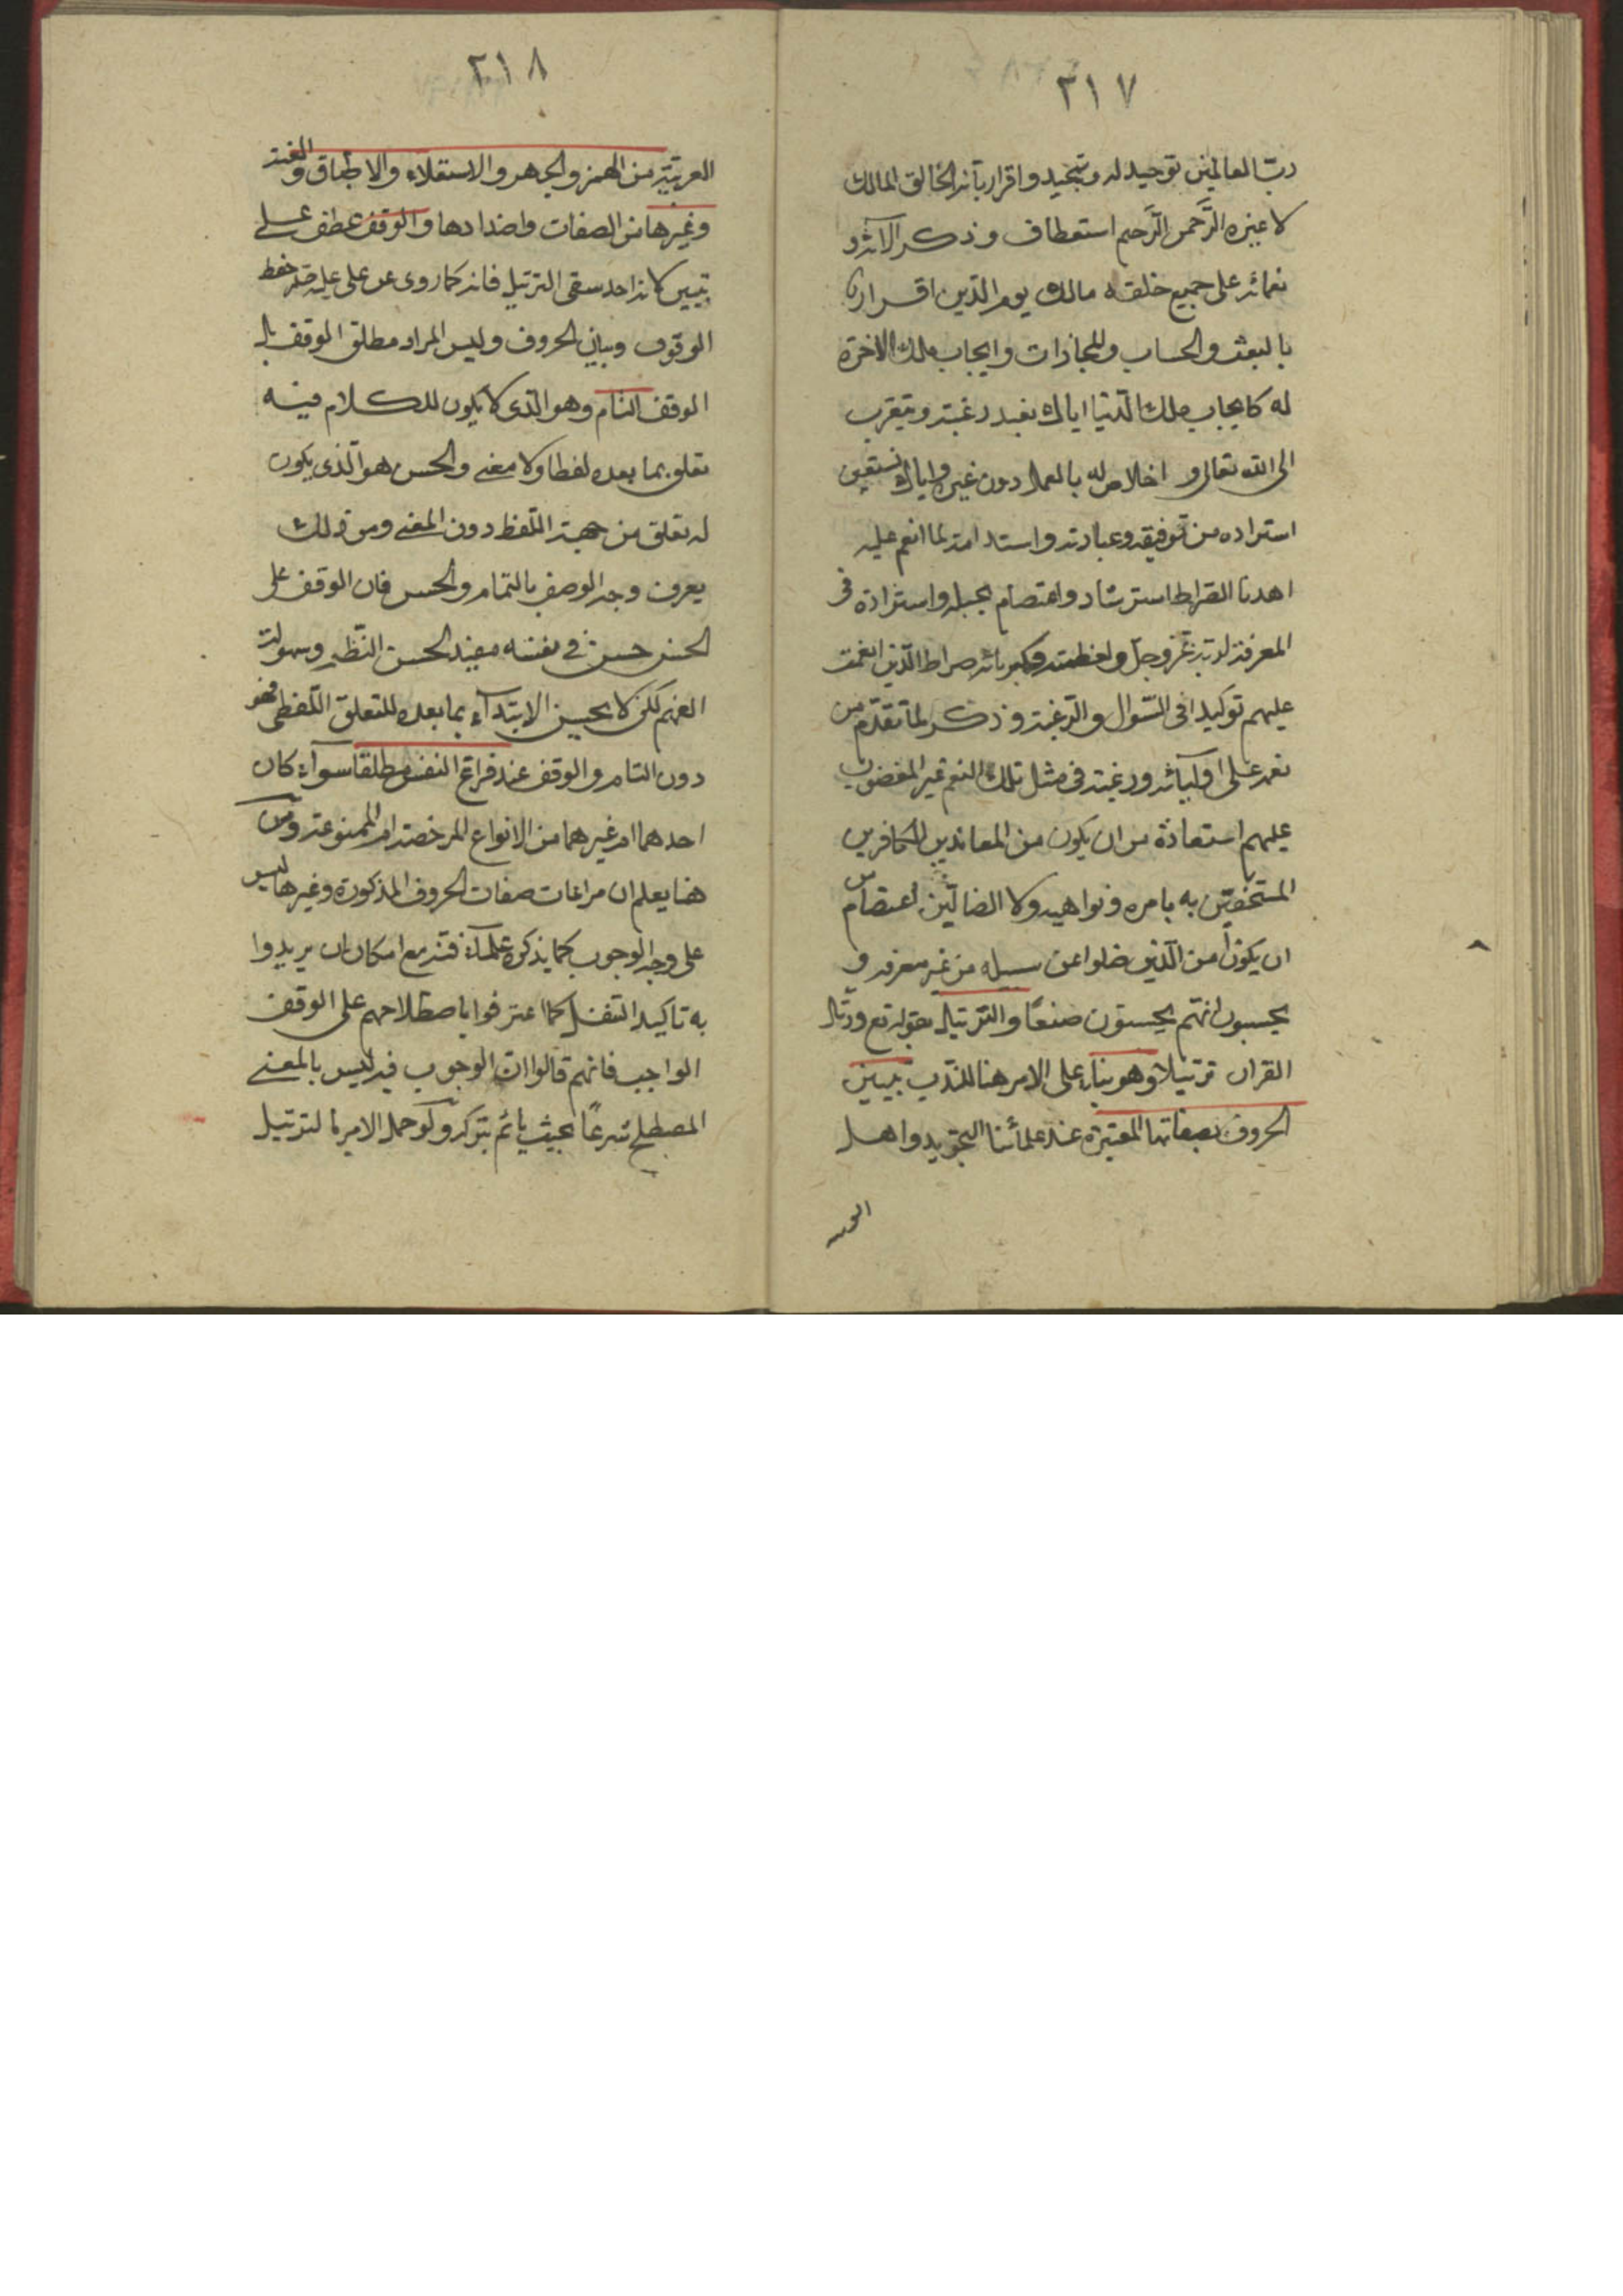 ٣١٧
رب العالمين توحيد له وتحميد واقرار بأنه الخالق المالك
لا غيره الرَّحمن الرَّحيم استعطاف وذكر الآئه و
نعمائه على جميع خلقه مالك يوم الدّين اقرار
بالبعث والحساب والمجازات وايجاب ملك الآخرة
له كايجاب ملك الدّنيا اياك نعبد رغبته وتقرب
الى الله تعالى و اخلاص له بالعمل دون غيره واياك نستعين
استزاده من توفيقه وعبادته واستدامة لما انعم عليه
اهدنا الصّراط استرشاد واعتصام بحبله واستزادة فى
المعرفة لربّه عزّ وجلّ ولعظمته وكبريائه صراط الّذين انعمت
عليهم توكيدا فى السّؤال والرّغبة وذكر لما تقدّم من
نعمه على اوليائه ورغبة فى مثل تلك النعم غير المغضوب
عليهم استعاذة من ان يكون من المعاندين الكافرين
المستخفّين به بامره ونواهيه ولا الضالّين اعتصام من
ان يكون من الّذين ضلوا عن سبيله من غير معرفه و
يحسبون انّهم يحسنون صنعًا والترتيل بقوله تع ورتل
القران ترتيلا وهو بناء على الامر هنا للنّدب تبيين
الحروف بصفاتها المعتبرة عند علمائنا التجويد واهل
العربيه
٣١٨
العربيّة من الهمز والجهر والاستعلاء والاطباق والغنه
وغيرها من الصفات واضدادها والوقف عطف على
تبيين كانه احد سقى الترتيل فانه كما روى عن على عليه حفظ
الوقوف وبيان الحروف وليس المراد مطلق الوقف بل
الوقف التام وهو الّذى لا يكون للكلام فيه
تعلق بما بعده لفظا ولا معنى والحسن هو الّذى يكون
له تعلق من جهة اللّفظ دون المعنى ومن ذلك
يعرف وجه الوصف بالتّمام والحسن فان الوقف على
الحسن حسن فى نفسه مفيد لحسن النّظم وسهولة
الفهم لكن لا يحسن الابتدآء بما بعده للتعلق اللّفظى فهو
دون التام والوقف عند فراغ النفس مطلقا سوآء كان
احدهما ام غيرهما من الانواع المرخصة ام الممنوعة ومن
هنا يعلم ان مراعات صفات الحروف المذكورة وغيرها ليس
على وجه الوجوب كما يذكره علمآء فنّه مع امكان ان يريدوا
به تاكيد الفعل كما اعترفوا باصطلاحهم على الوقف
الواجب فانهم قالوا انّ الوجوب فيه ليس بالمعنى
المصطلح شرعًا بحيث يأثم بتركه ولو حمل الامر بالترتيل